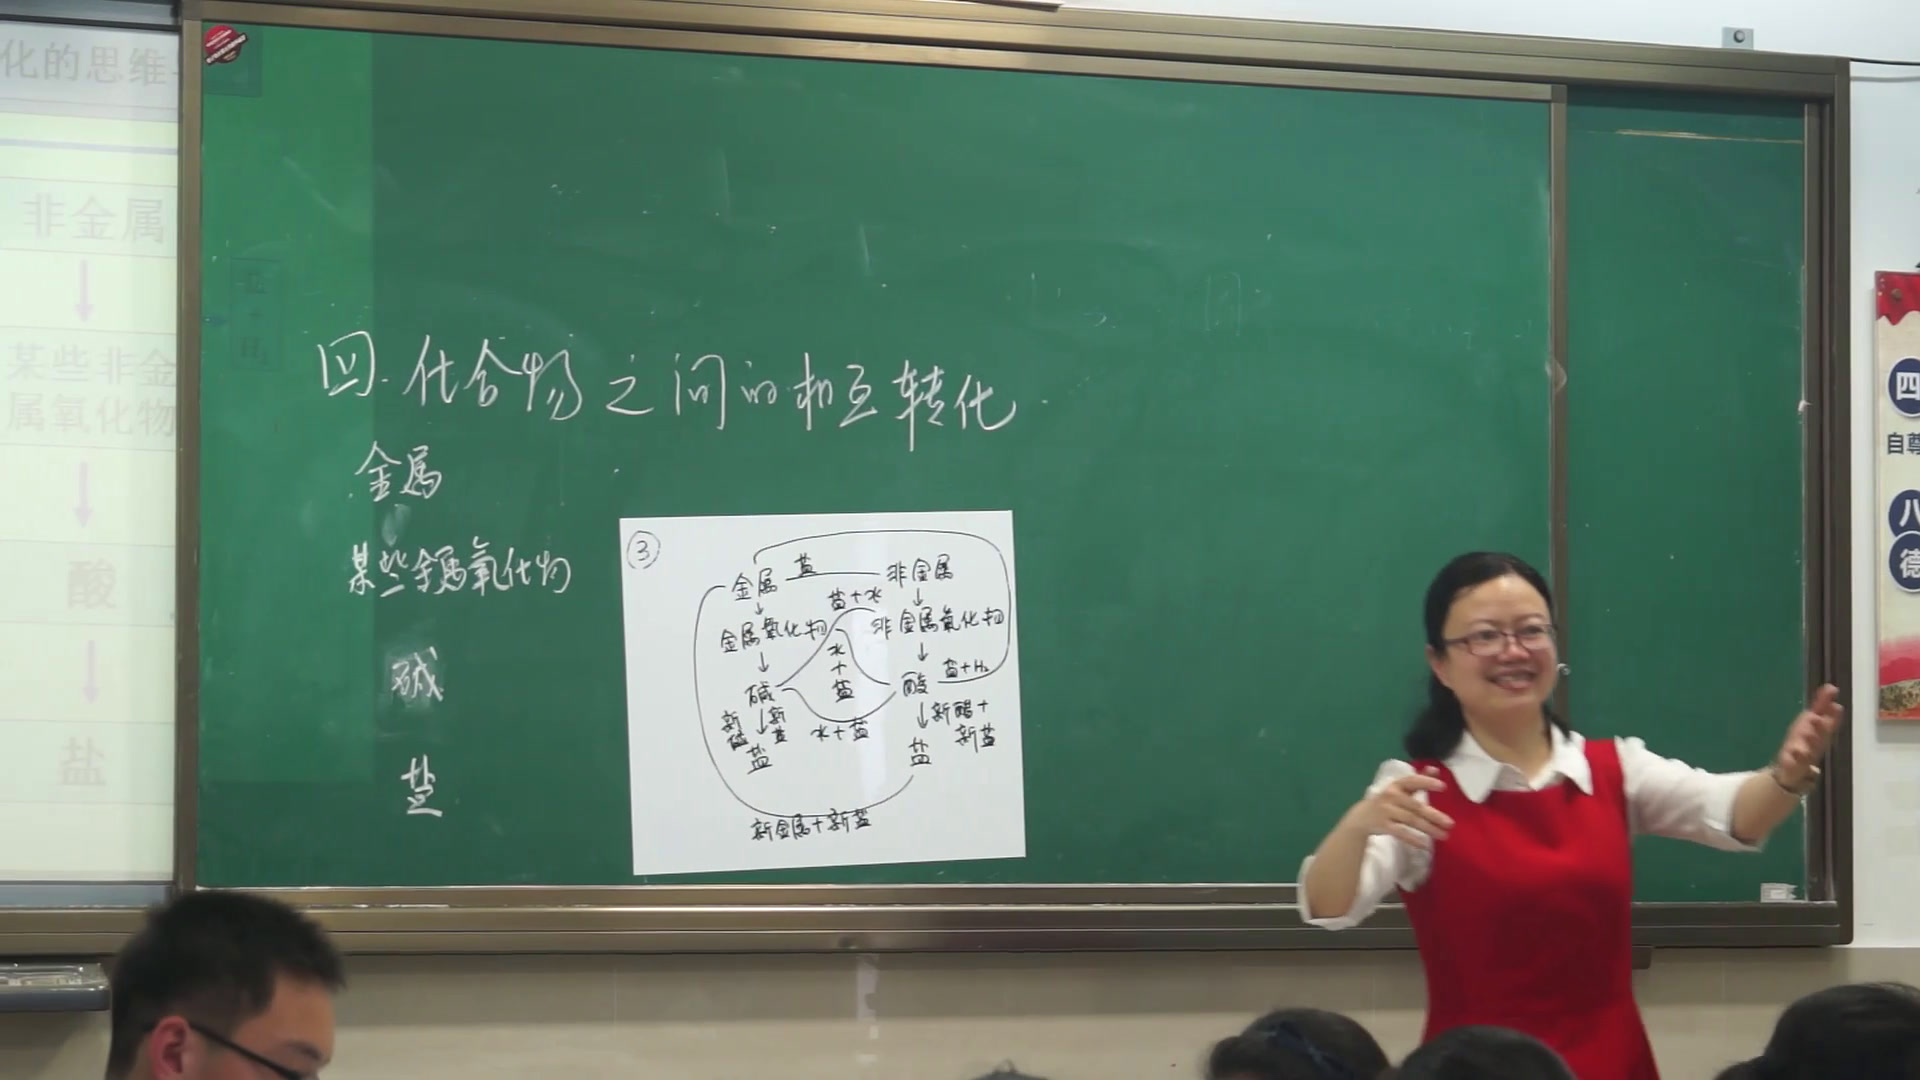 化的思维
非金属
某些非金
属氧化物
酸
盐
四.化合物之间的相互转化
金属
某些金属氧化物
碱
盐
③
金属 盐 非金属
盐+水
金属氧化物 非金属氧化物
水
+
盐
碱 酸 盐+H₂
新 新
盐
水+盐
新醋+
新盐
盐 盐
新金属+新盐
四
自尊
八
德